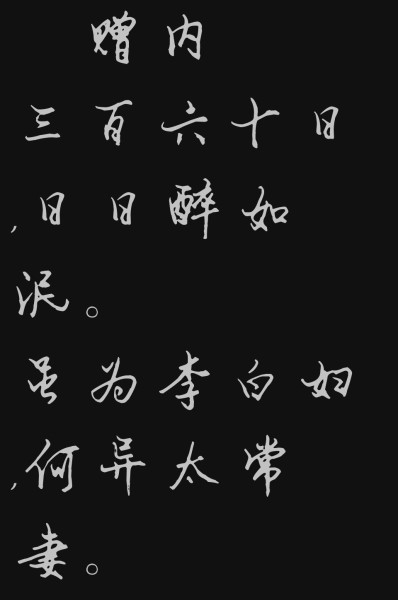 赠内
三百六十日
,日日醉如
泥。
虽为李白妇
,何异太常
妻。